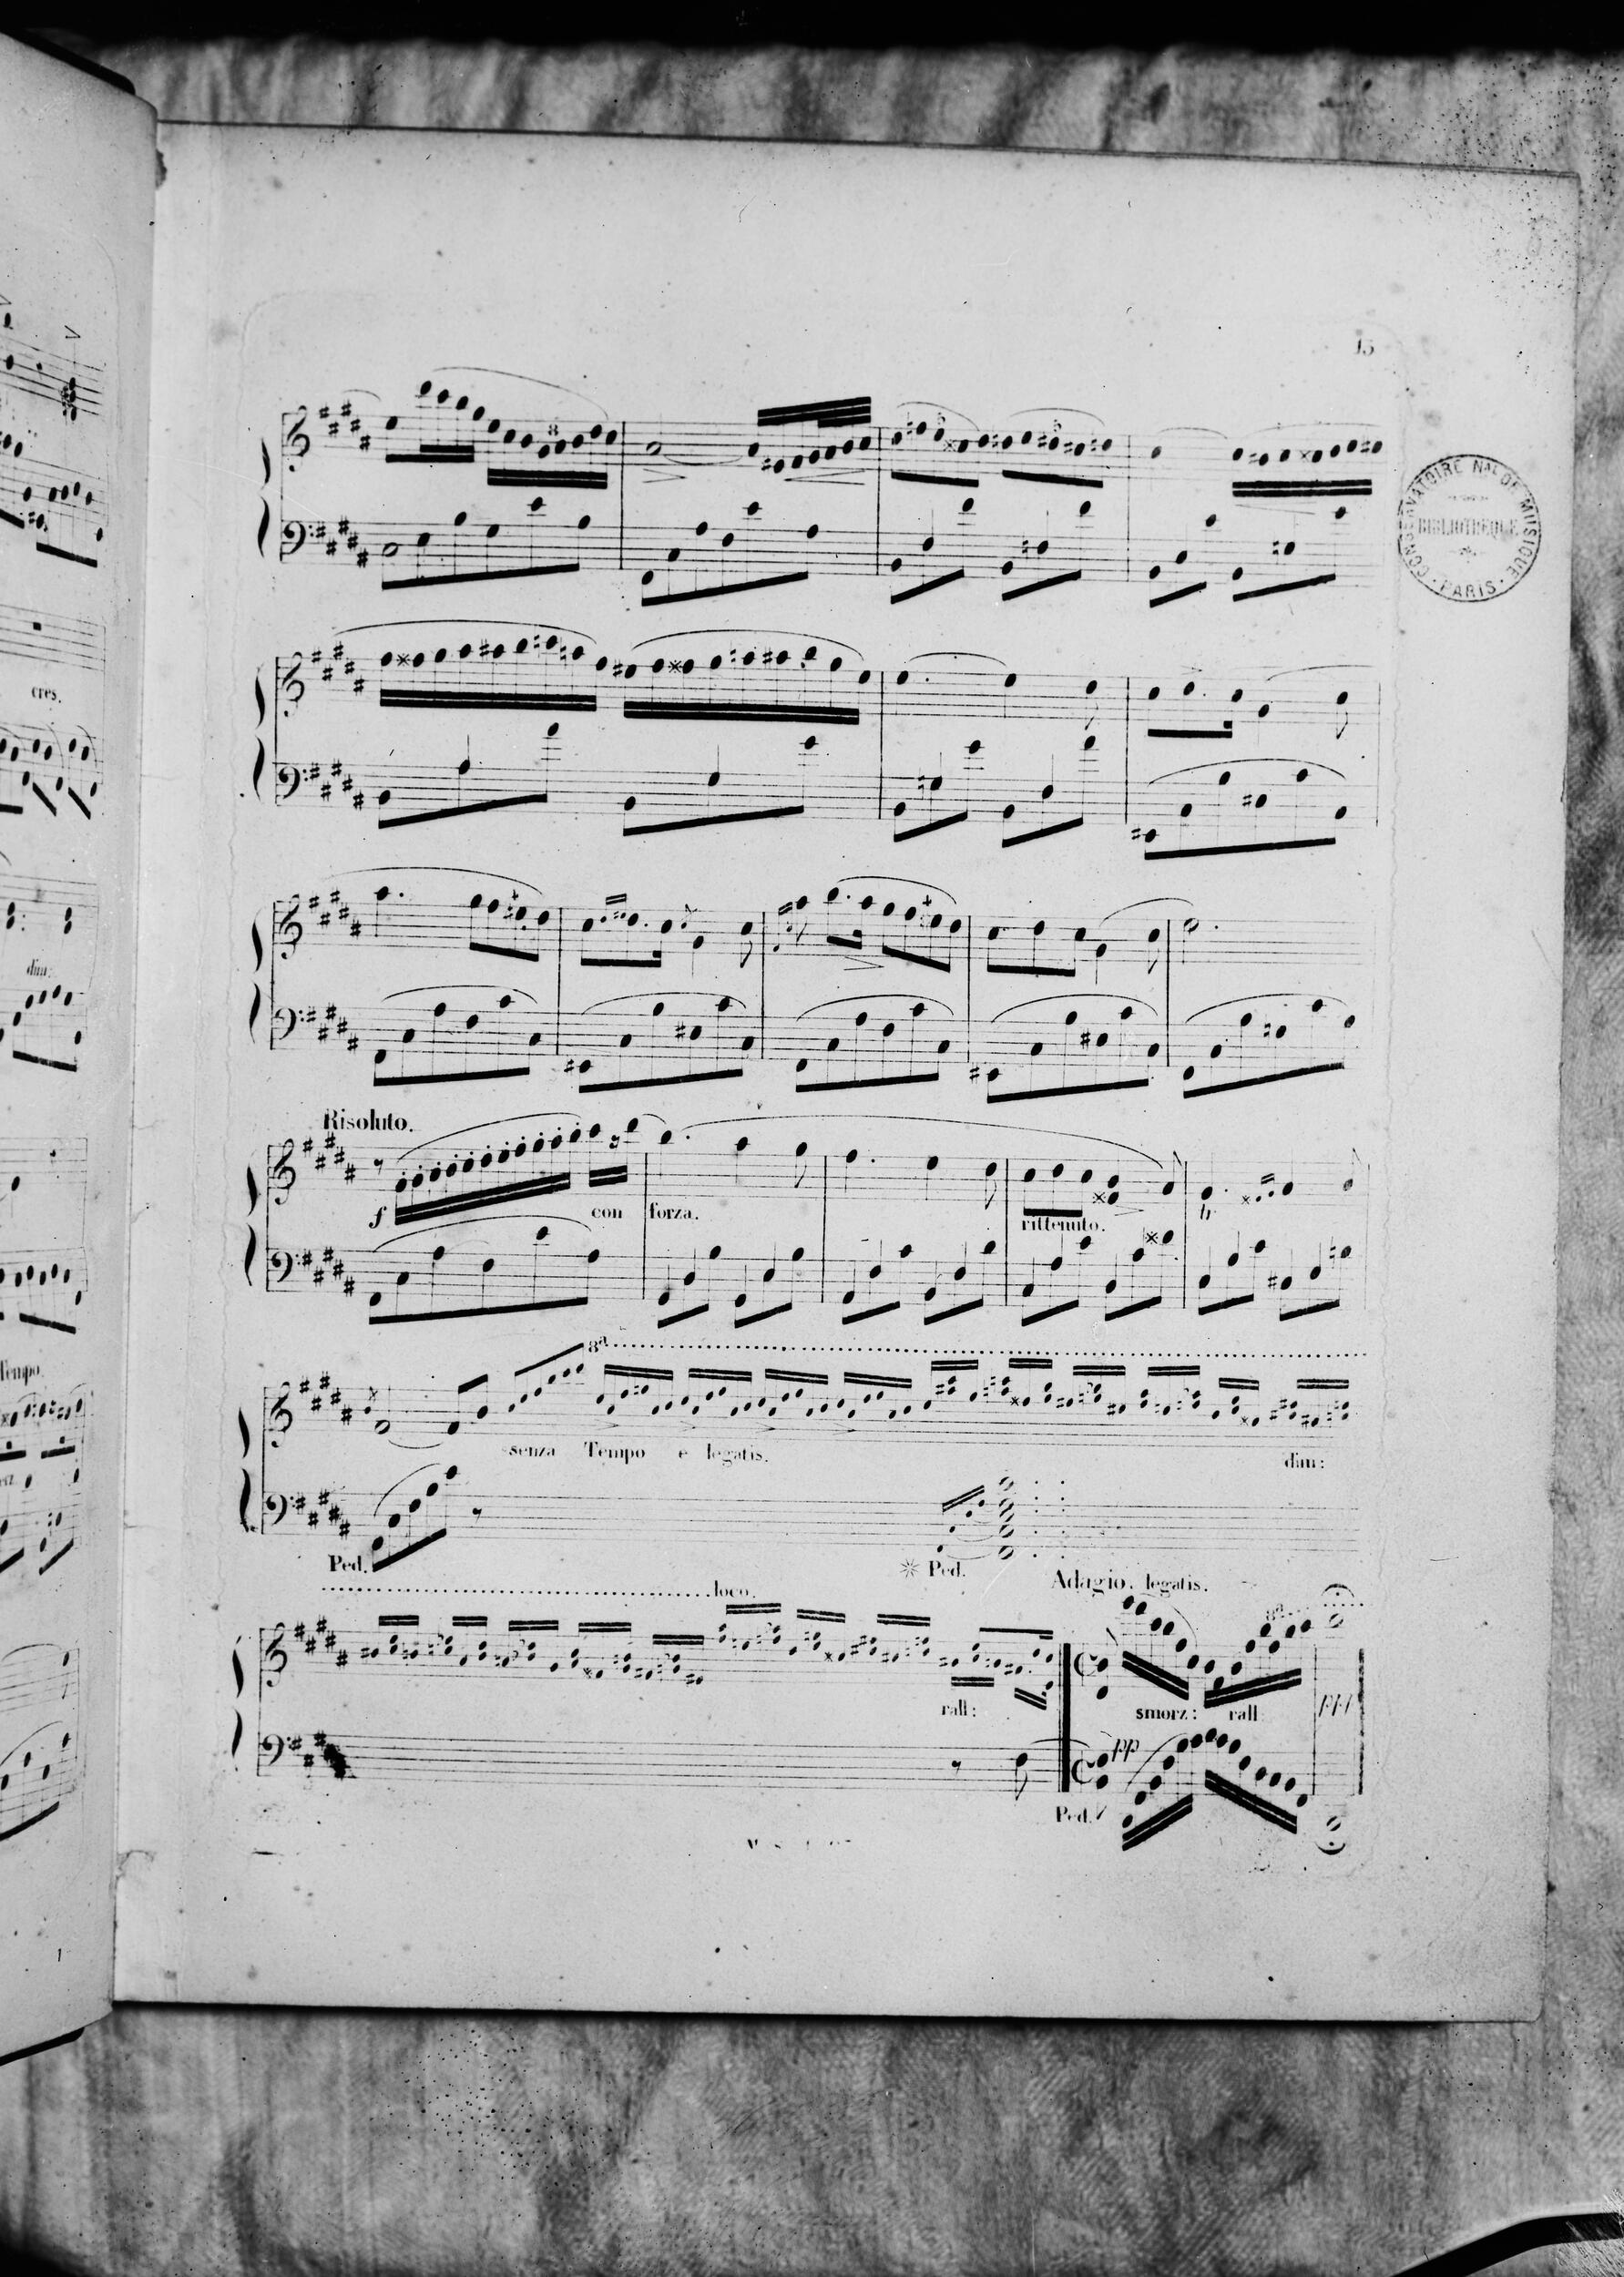 15
CONSERVATOIRE NAL DE MUSIQUE
BIBLIOTHEQUE
PARIS
cres.
8
dim:
Risoluto.
f con forza. rittenuto.
Tempo.
8a
senza Tempo e legatis. dim:
Ped. Ped. Adagio. legatis.
loco. 8a
rall: smorz: rall ppp
pp
Ped.